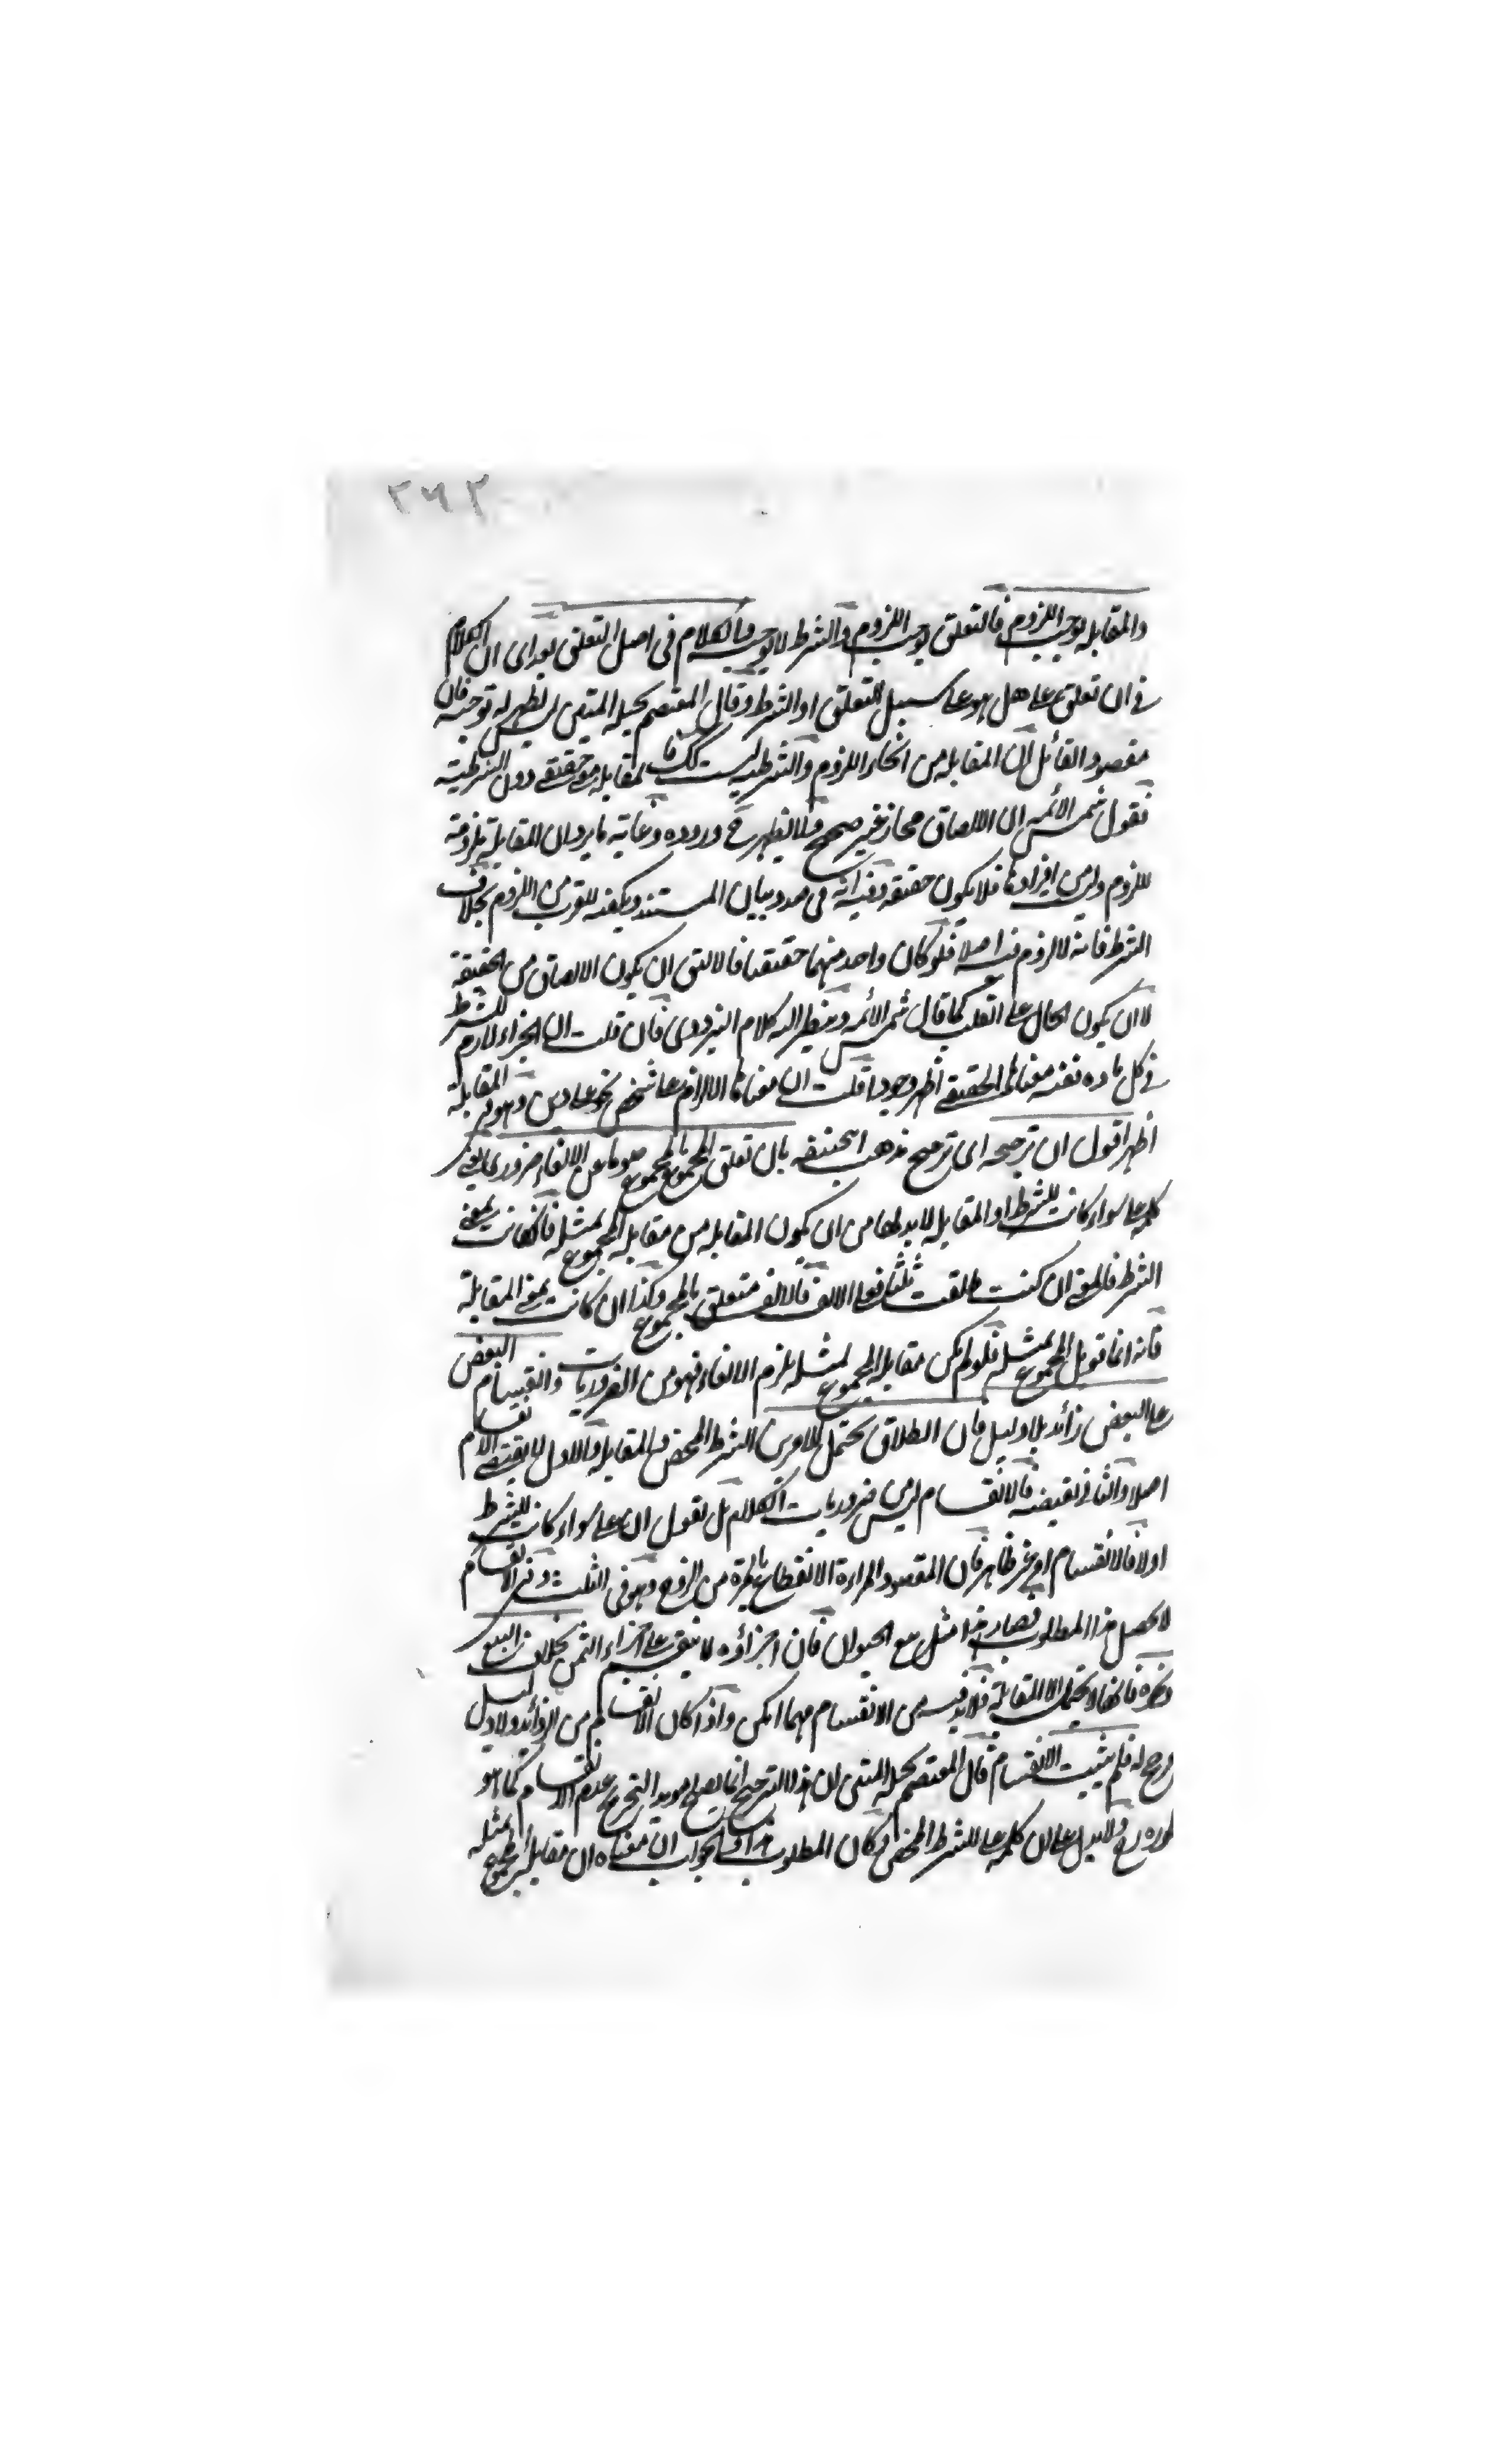 ٢٦٢
والمقابلة توجب اللزوم فالتعلق يوجب اللزوم والشرط لا يوجبه والكلام في اصل التعلق بعد اى ان الكلام
في ان تعلق على هل هو على سبيل التعلق او الشرط وقال المعتصم بحبله المتين ليس يظهر له توجيه فان
مقصود القائل ان المقابلة من انحاء اللزوم والشرطية ليست كك فالمقابلة معنى حقيقى دون الشرطية
فقول شمس الائمة ان الالصاق مجاز غير صحيح ولا يظهر ح وروده وغاية ما يرد ان المقابلة ملزومة
للزوم وليس من افرادها فلا يكون حقيقة وفيه انه في صدد بيان المستند ويكفيه القرب من اللزوم بخلاف
الشرط فانه لا لزوم فيه اصلا فلو كان واحد منهما حقيقيا فالاليق ان يكون الالصاق من الحقيقة
لا ان يكون الحال على القلب كما قال شمس الائمة وينظر اليه كلام البزدوى فان قلت ان الجزاء لازم للشرط
في كل مادة ففيه معناها الحقيقى اظهر وجودا قلت ان معناها الالزام على شخص نحو على دين وهو في المقابلة
اظهر اقول ان ترجيحه اى ترجيح مذهب ابى حنيفة بان تعلق المجموع بالمجموع صونا عن الالغاء ضرورى يعنى
كلمة على سواء كانت للشرط او المقابلة لا بد لها من ان يكون المقابلة من مقابلة المجموع بمثله فان كانت بمعنى
الشرط فالمعنى ان كنت طلقت ثلثا فعلى الالف فالالف متعلق بالمجموع وكذا ان كانت بمعنى المقابلة
فانه انما قوبل المجموع بمثله فلو لم يكن مقابلة المجموع بمثله يلزم الالغاء فهو من الضروريات وانقسام البعض
على البعض زائد بلا دليل فان الطلاق يحتمل الامرين الشرط المحض والمقابلة والاول لا يقتضى الانقسام
اصلا والثانى يقتضيه فالانقسام ليس من ضروريات الكلام بل نقول ان على سواء كانت للشرط
اولا فالانقسام غير ظاهر فان المقصود للمراءة الانقطاع بالمرة من الزوج وهو في الثلث وفي الانقسام
لا يحصل هذا المطلوب فصار هذا مثل بيع الحيوان فان اجزاؤه لا ينقسم على اجزاء الثمن بخلاف البيع
ونحوه فانها لا يحتمل الا المقابلة فلا بد فيه من الانقسام مهما امكن واذا كان الانقسام من الزوائد ولا دليل
مرجح له فلم يثبت الانقسام قال المعتصم بحبله المتين ان هذا الترجيح انما يصلح مؤيدا لتخريج عدم الانقسام كما هو
ولا يدل على ان كلمة على للشرط المحض وكان المطلوب هذا والجواب ان معناه ان مقابلة المجموع بمثله